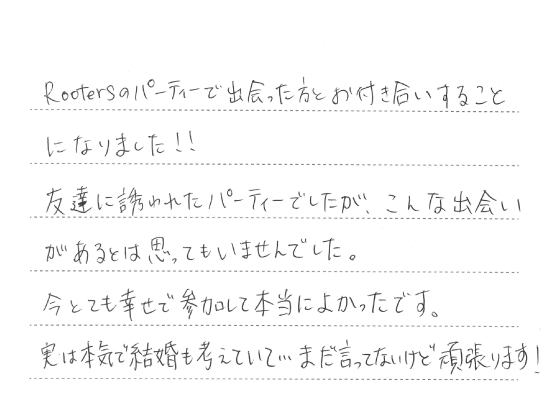 Rootersのパーティーで出会った方とお付き合いすること
になりました!!
友達に誘われたパーティーでしたが、こんな出会い
があるとは思ってもいませんでした。
今とても幸せで参加して本当によかったです。
実は本気で結婚も考えていて…まだ言ってないけど頑張ります!